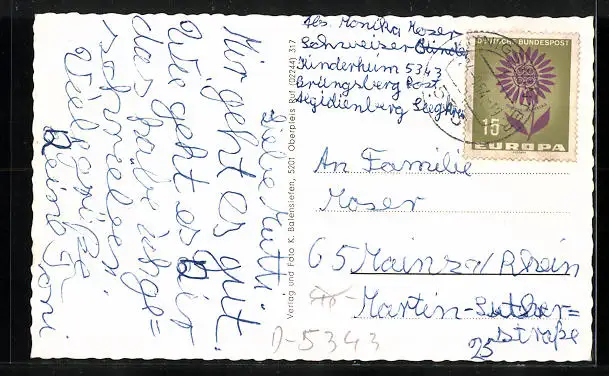 Liebe Mutti
Mir geht es gut.
Wie geht es Dir
das habe ich ge=
schrieben.
Viele Grüße
Deine Toni
Verlag und Foto K. Balensiefen, 5201 Oberpleis Ruf (02244) 317
Abs. Monika Moser
Schweizer
Kinderheim 5343
Grüngsberg Post
Aegidienberg Siegkreis
DEUTSCHE BUNDESPOST
15
EUROPA
An Familie
Moser
65 Mainz/Rhein
Martin-Luther=
straße
25
D-5343